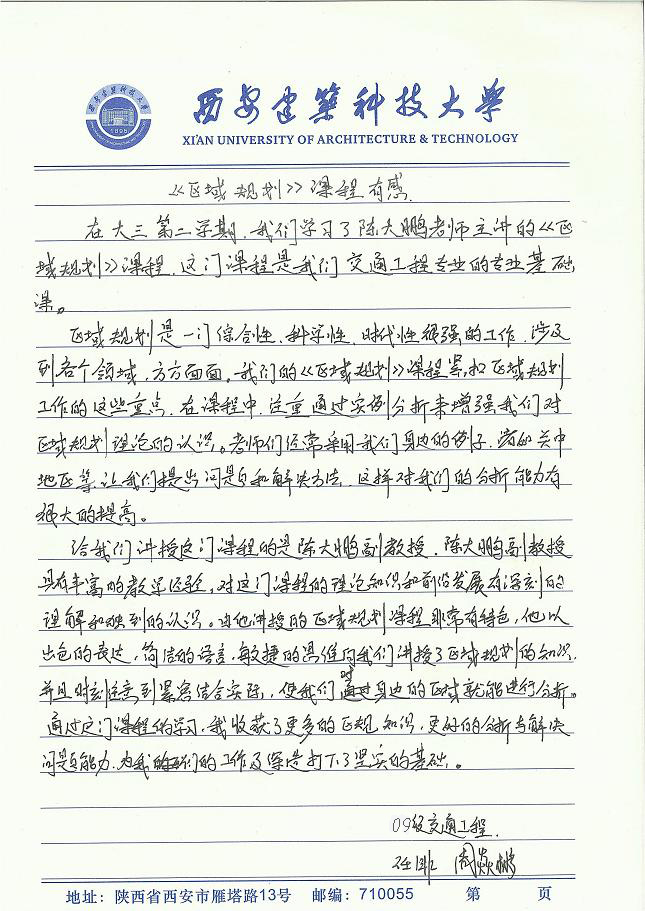 西安建筑科技大学
1895
XI'AN UNIVERSITY OF ARCHITECTURE & TECHNOLOGY
《区域规划》课程有感.
在大三第二学期,我们学习了陈大鹏老师主讲的《区
域规划》课程,这门课程是我们交通工程专业的专业基础
课。
区域规划是一门综合性、科学性、时代性很强的工作,涉及
到各个领域,方方面面。我们的《区域规划》课程紧扣区域规划
工作的这些重点,在课程中,注重通过实例分析来增强我们对
区域规划理论的认识。老师们经常采用我们身边的例子,诸如关中
地区等,让我们提出问题和解决方法,这样对我们的分析能力有
很大的提高。
给我们讲授这门课程的是陈大鹏副教授,陈大鹏副教授
具有丰富的教学经验,对这门课程的理论知识和前沿发展有深刻的
理解和独到的认识。由他讲授的区域规划课程非常有特色,他以
出色的表达,简洁的语言,敏捷的思维向我们讲授了区域规划的知识,
并且时刻注意到紧密结合实际,使我们通过对身边的区域就能进行分析。
通过这门课程的学习,我收获了更多的区规知识,更好的分析与解决
问题能力,为我们的工作及深造打下了坚实的基础。
09级交通工程.
周焱
地址:陕西省西安市雁塔路13号 邮编:710055 第 页